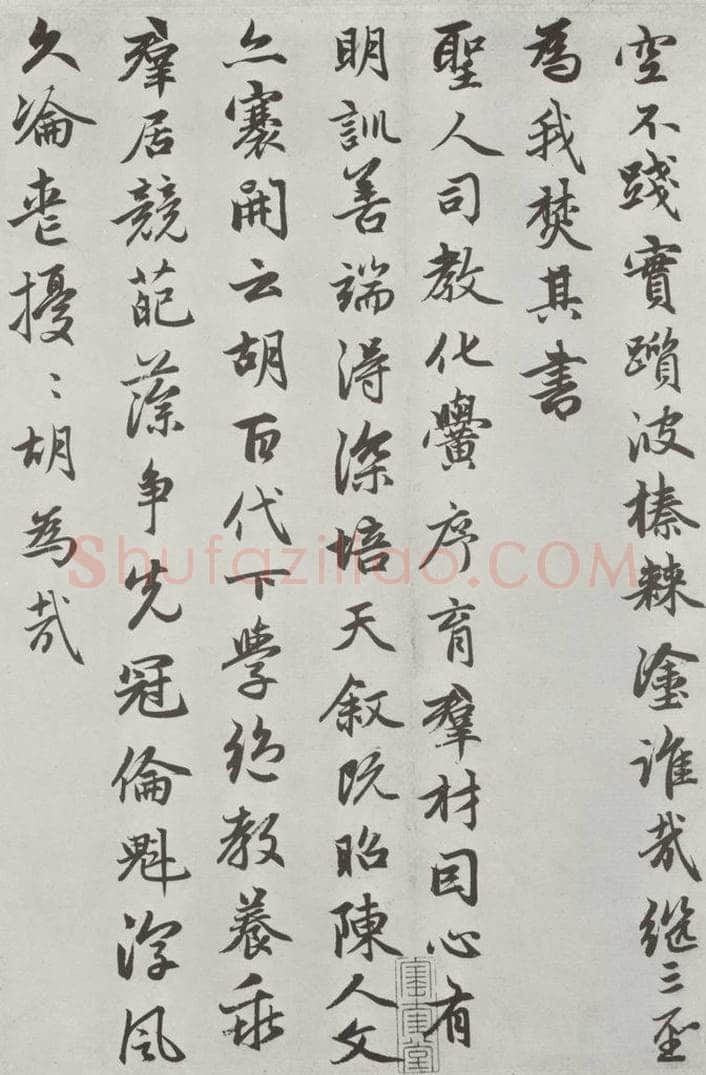 空不踐實躓彼榛棘塗誰哉繼三聖
為我焚其書
聖人司教化黌序育羣材因心有
明訓善端得深培天叙既昭陳人文
亦褰開云胡百代下學絕教養乖
羣居競葩藻爭先冠倫魁淳風
久淪喪擾〻胡為哉
Shufaziliao.COM